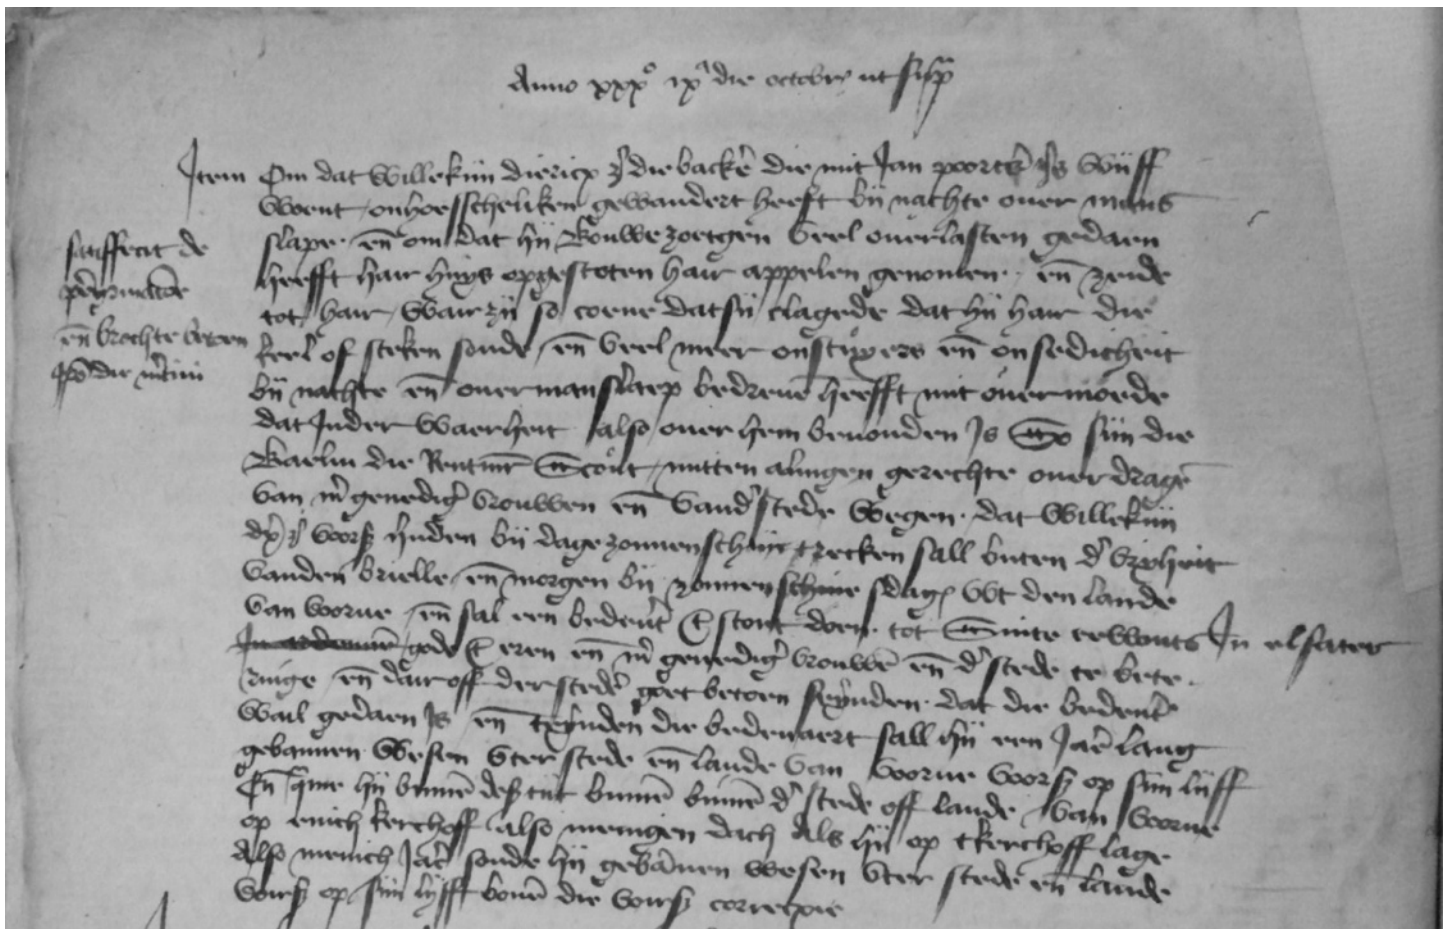 Anno xxxº ixª die octobr ut supra
Item Om dat Willekijn diericx zn die backer die mit Jan poorters wijff
went onhoesscheliken gewandert heeft bij nachte ouer mans
slape en om dat hij vrouwe zoetgen veel ouerlasten gedaen
heefft hair huys opgestoten hair appelen genomen en zeide
tot hair Wair zij so coene dat sij clagede dat hij hair die
keel of steken soude en veel meer onstuyers en onsedicheit
bij nachte en ouermanslaep bedreuen heefft mit ouermoede
dat Inder waerheit also ouer hem beuonden Is So sijn die
Baeliu die Rentmr Scout mitten alingen gerechte ouerdragen
van mr genediger vrouwen en vander stede wegen dat Willekijn
voirs huden bij dage zonnenschijn trecken sall buten der vryheit
vanden brielle en morgen bij zonnenschine sdages wt den lande
van voorne en sal een bedeuert te stont doen tot Sinte ewouts In elsater
gode te eren en mr genediger vrouwen en der stede te bete
ringe en dair off der stede goet betoen seynden dat die bedeuert
wail gedaen Is en teynden die bedeuaert sall hij een Jaer lang
gebannen wesen wter stede en lande van voorne voirs op sijn lijff
En quame hij binnen deser tijt binnen binnen der stede off lande van voorne
op enich kerchoff also menigen dach als hij op tkerchoff lage
also menich Jaer soude hij gebannen wesen wter stede en lande
voirs op sijn lijff bouen die voirs correxie
satisfecit de
en brochte betoen